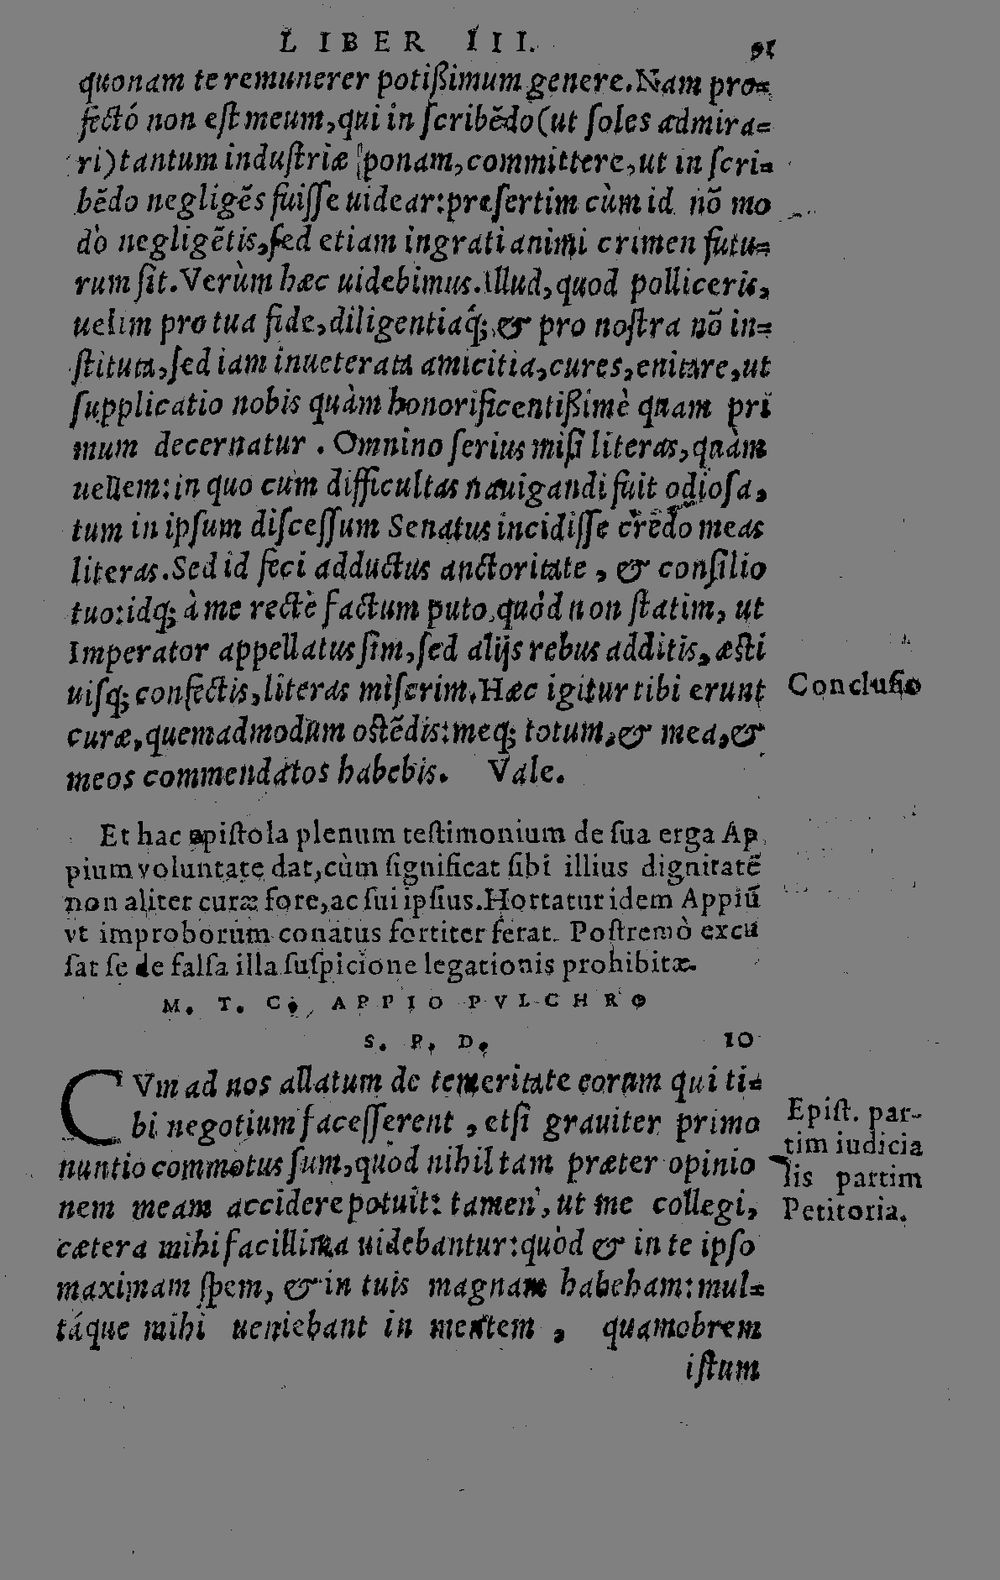 LIBER III. 91
quonam te remunerer potißimum genere. Nam pro=
fectó non est meum, qui in scribēdo (ut soles admira=
ri) tantum industriæ ponam, committere, ut in scri=
bēdo negligēs fuisse uidear: præsertim cùm id nō mo
dò negligētis, sed etiam ingrati animi crimen futu=
rum sit. Verùm hæc uidebimus. Illud, quod polliceris,
uelim pro tua fide, diligentiaq́; & pro nostra nō in=
stituta, sed iam inueterata amicitia, cures, enitare, ut
supplicatio nobis quàm honorificentißimè quam pri
mum decernatur. Omnino serius misi literas, quàm
uellem: in quo cum difficultas nauigandi fuit odiosa,
tum in ipsum discessum Senatus incidisse crēdo meas
literas. Sed id feci adductus auctoritate, & consilio
tuo: idq; à me rectè factum puto, quòd non statim, ut
Imperator appellatus sim, sed alijs rebus additis, æsti
uisq; confectis, literas miserim. Hæc igitur tibi erunt
Conclusio
curæ, quemadmodum ostēdis: meq; totum, & mea, &
meos commendatos habebis. Vale.
Et hac epistola plenum testimonium de sua erga Ap
pium voluntate dat, cùm significat sibi illius dignitatē
non aliter curæ fore, ac sui ipsius. Hortatur idem Appiū
vt improborum conatus fortiter ferat. Postremò excu
sat se de falsa illa suspicione legationis prohibitæ.
M. T. C. APPIO PVLCHRO
S. P. D. 10
CVm ad nos allatum de temeritate eorum qui ti=
bi negotium facesserent, etsi grauiter primo
nuntio commotus sum, quod nihil tam præter opinio
nem meam accidere potuit: tamen, ut me collegi,
cætera mihi facillima uidebantur: quòd & in te ipso
maximam spem, & in tuis magnam habebam: mul=
táque mihi ueniebant in mentem, quamobrem
istum
Epist. par-
tim iudicia
lis partim
Petitoria.